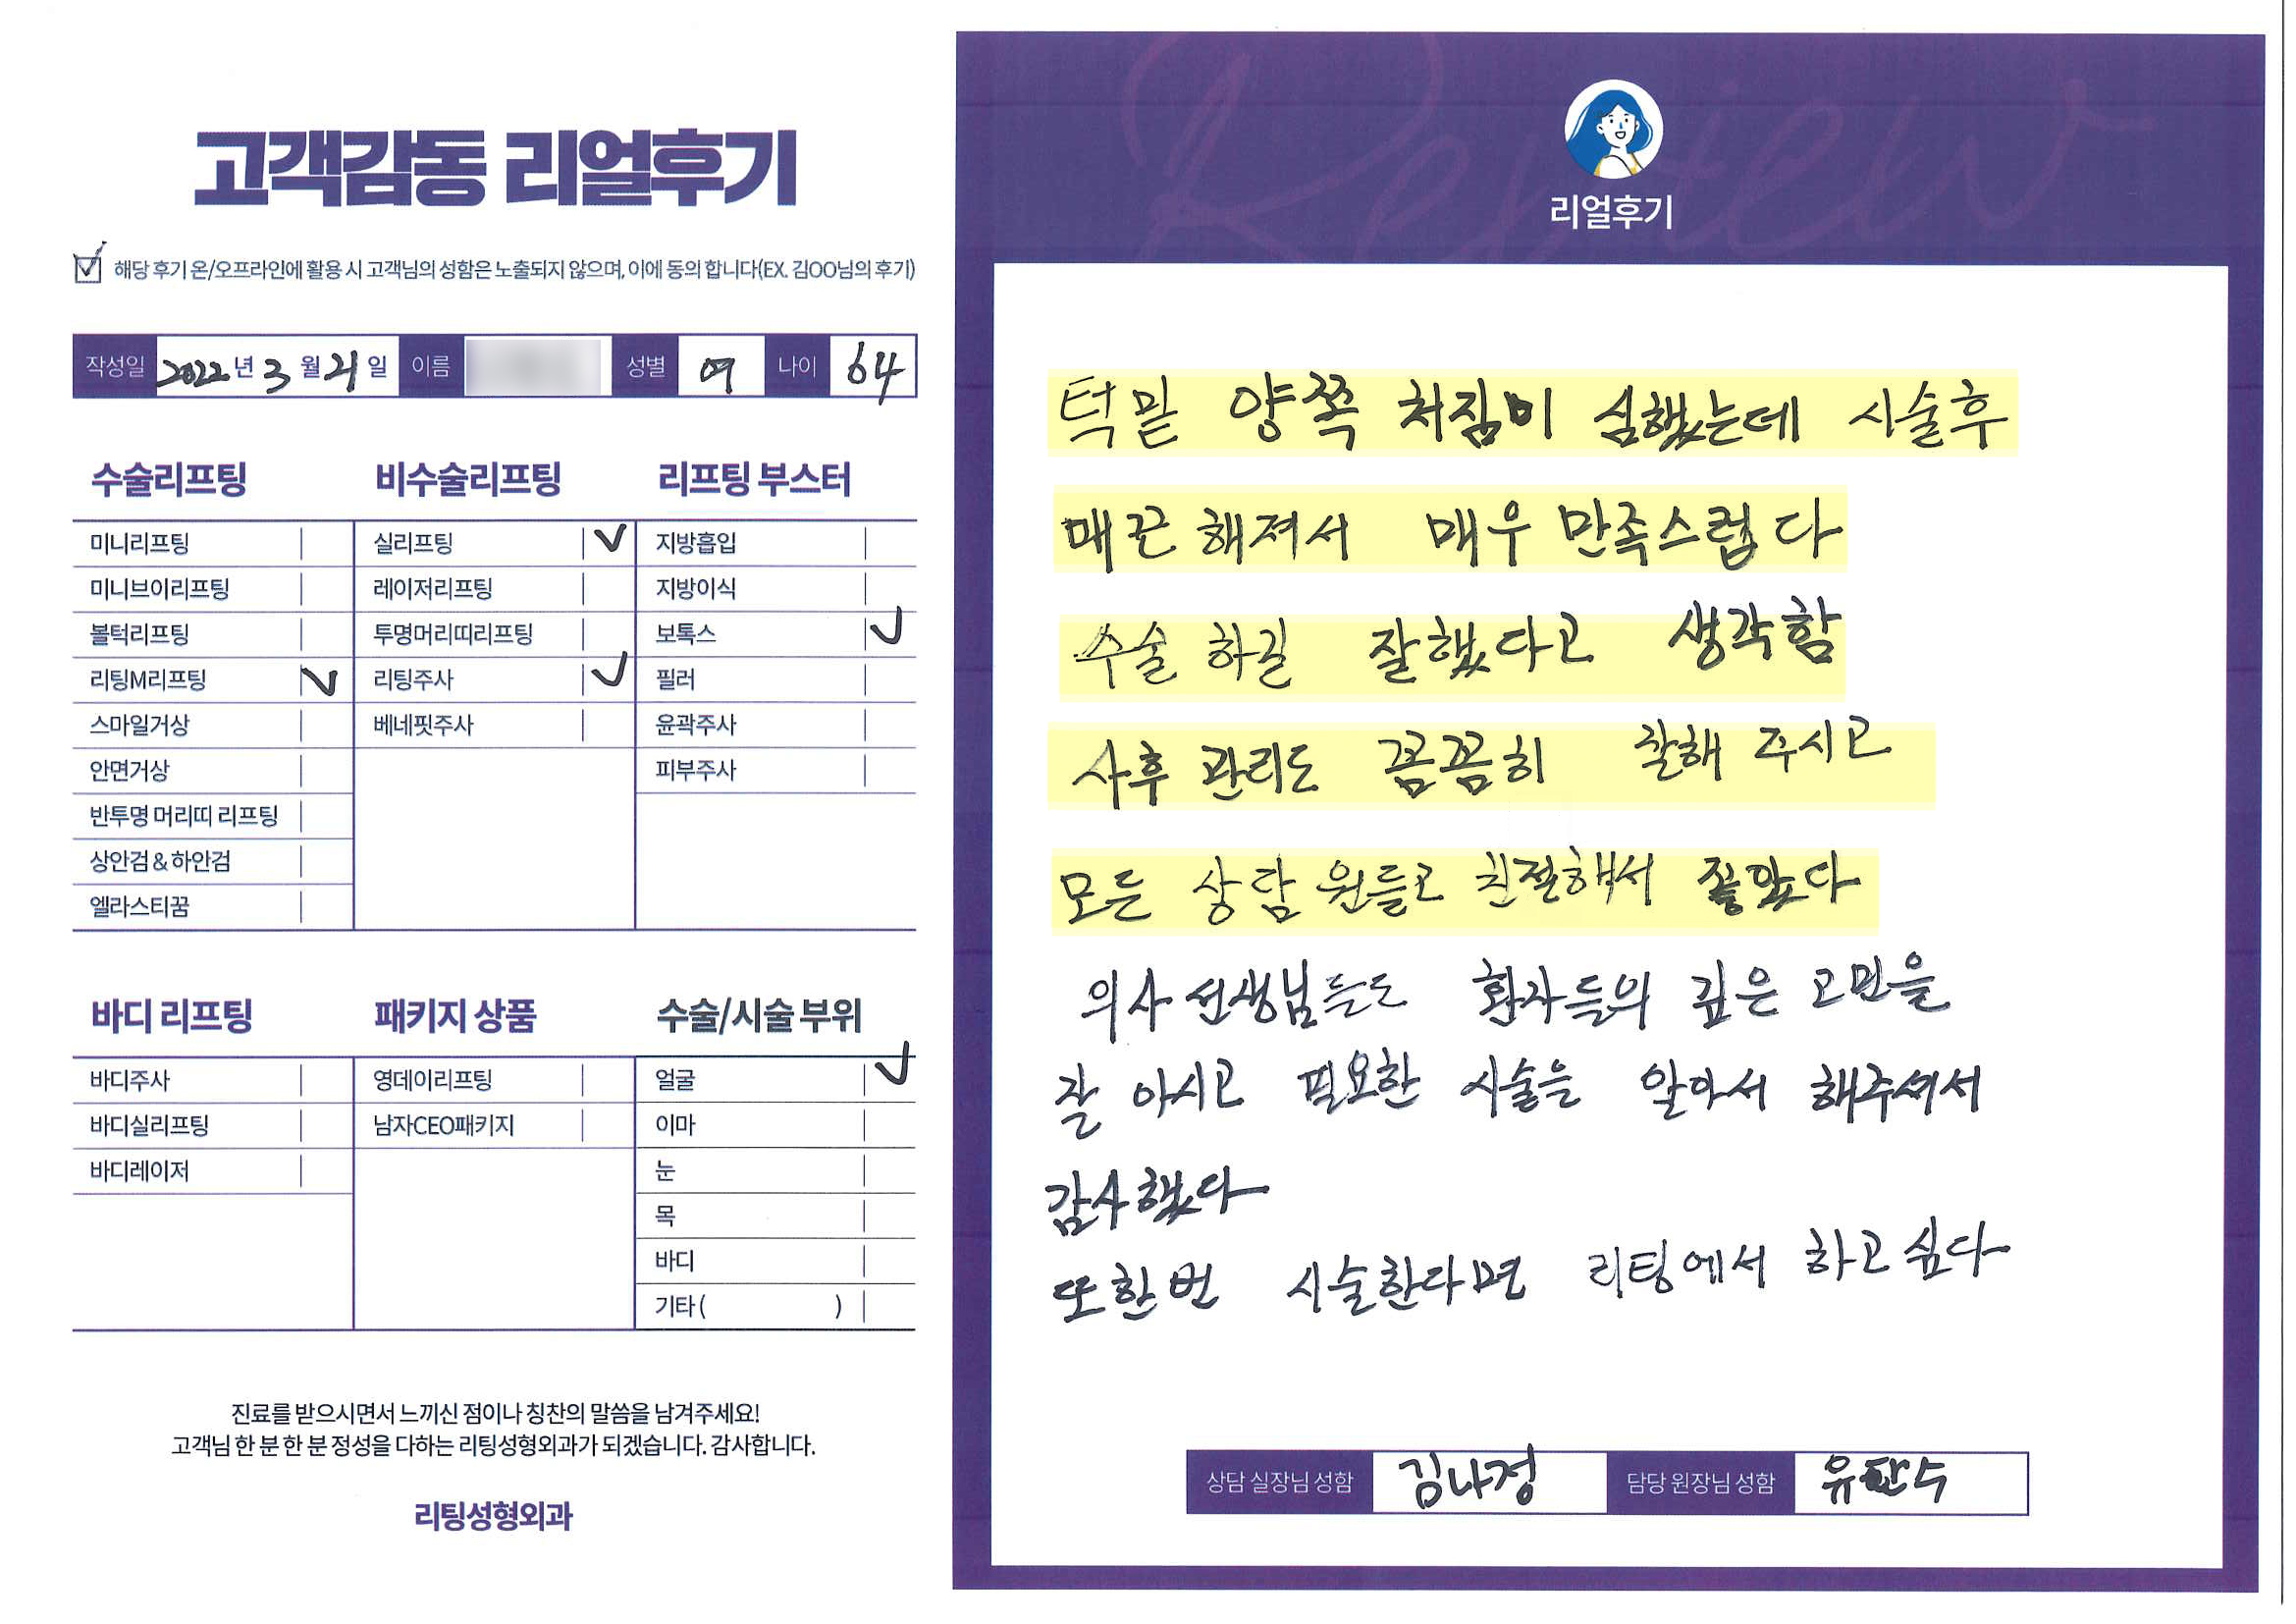 고객감동 리얼후기
해당 후기 온/오프라인에 활용 시 고객님의 성함은 노출되지 않으며, 이에 동의 합니다(EX. 김OO님의 후기)
작성일 2022년 3월 21일 이름 성별 여 나이 64
수술리프팅
미니리프팅
미니브이리프팅
볼턱리프팅
리팅M리프팅 ✓
스마일거상
안면거상
반투명 머리띠 리프팅
상안검 & 하안검
엘라스티꿈
비수술리프팅
실리프팅 ✓
레이저리프팅
투명머리띠리프팅
리팅주사 ✓
베네핏주사
리프팅 부스터
지방흡입
지방이식
보톡스 ✓
필러
윤곽주사
피부주사
바디 리프팅
바디주사
바디실리프팅
바디레이저
패키지 상품
영데이리프팅
남자CEO패키지
수술/시술 부위
얼굴 ✓
이마
눈
목
바디
기타 ( )
진료를 받으시면서 느끼신 점이나 칭찬의 말씀을 남겨주세요!
고객님 한 분 한 분 정성을 다하는 리팅성형외과가 되겠습니다. 감사합니다.
리팅성형외과
Review
리얼후기
턱밑 양쪽 처짐이 심했는데 시술후
매끈 해져서 매우 만족스럽다
수술 하길 잘했다고 생각함
사후 관리도 꼼꼼히 잘해 주시고
모든 상담 원들고 친절해서 좋았다
의사 선생님들도 환자들의 깊은 고민을
잘 아시고 필요한 시술을 알아서 해주셔서
감사했다
또한번 시술한다면 리팅에서 하고싶다
상담 실장님 성함 김나정 담당 원장님 성함